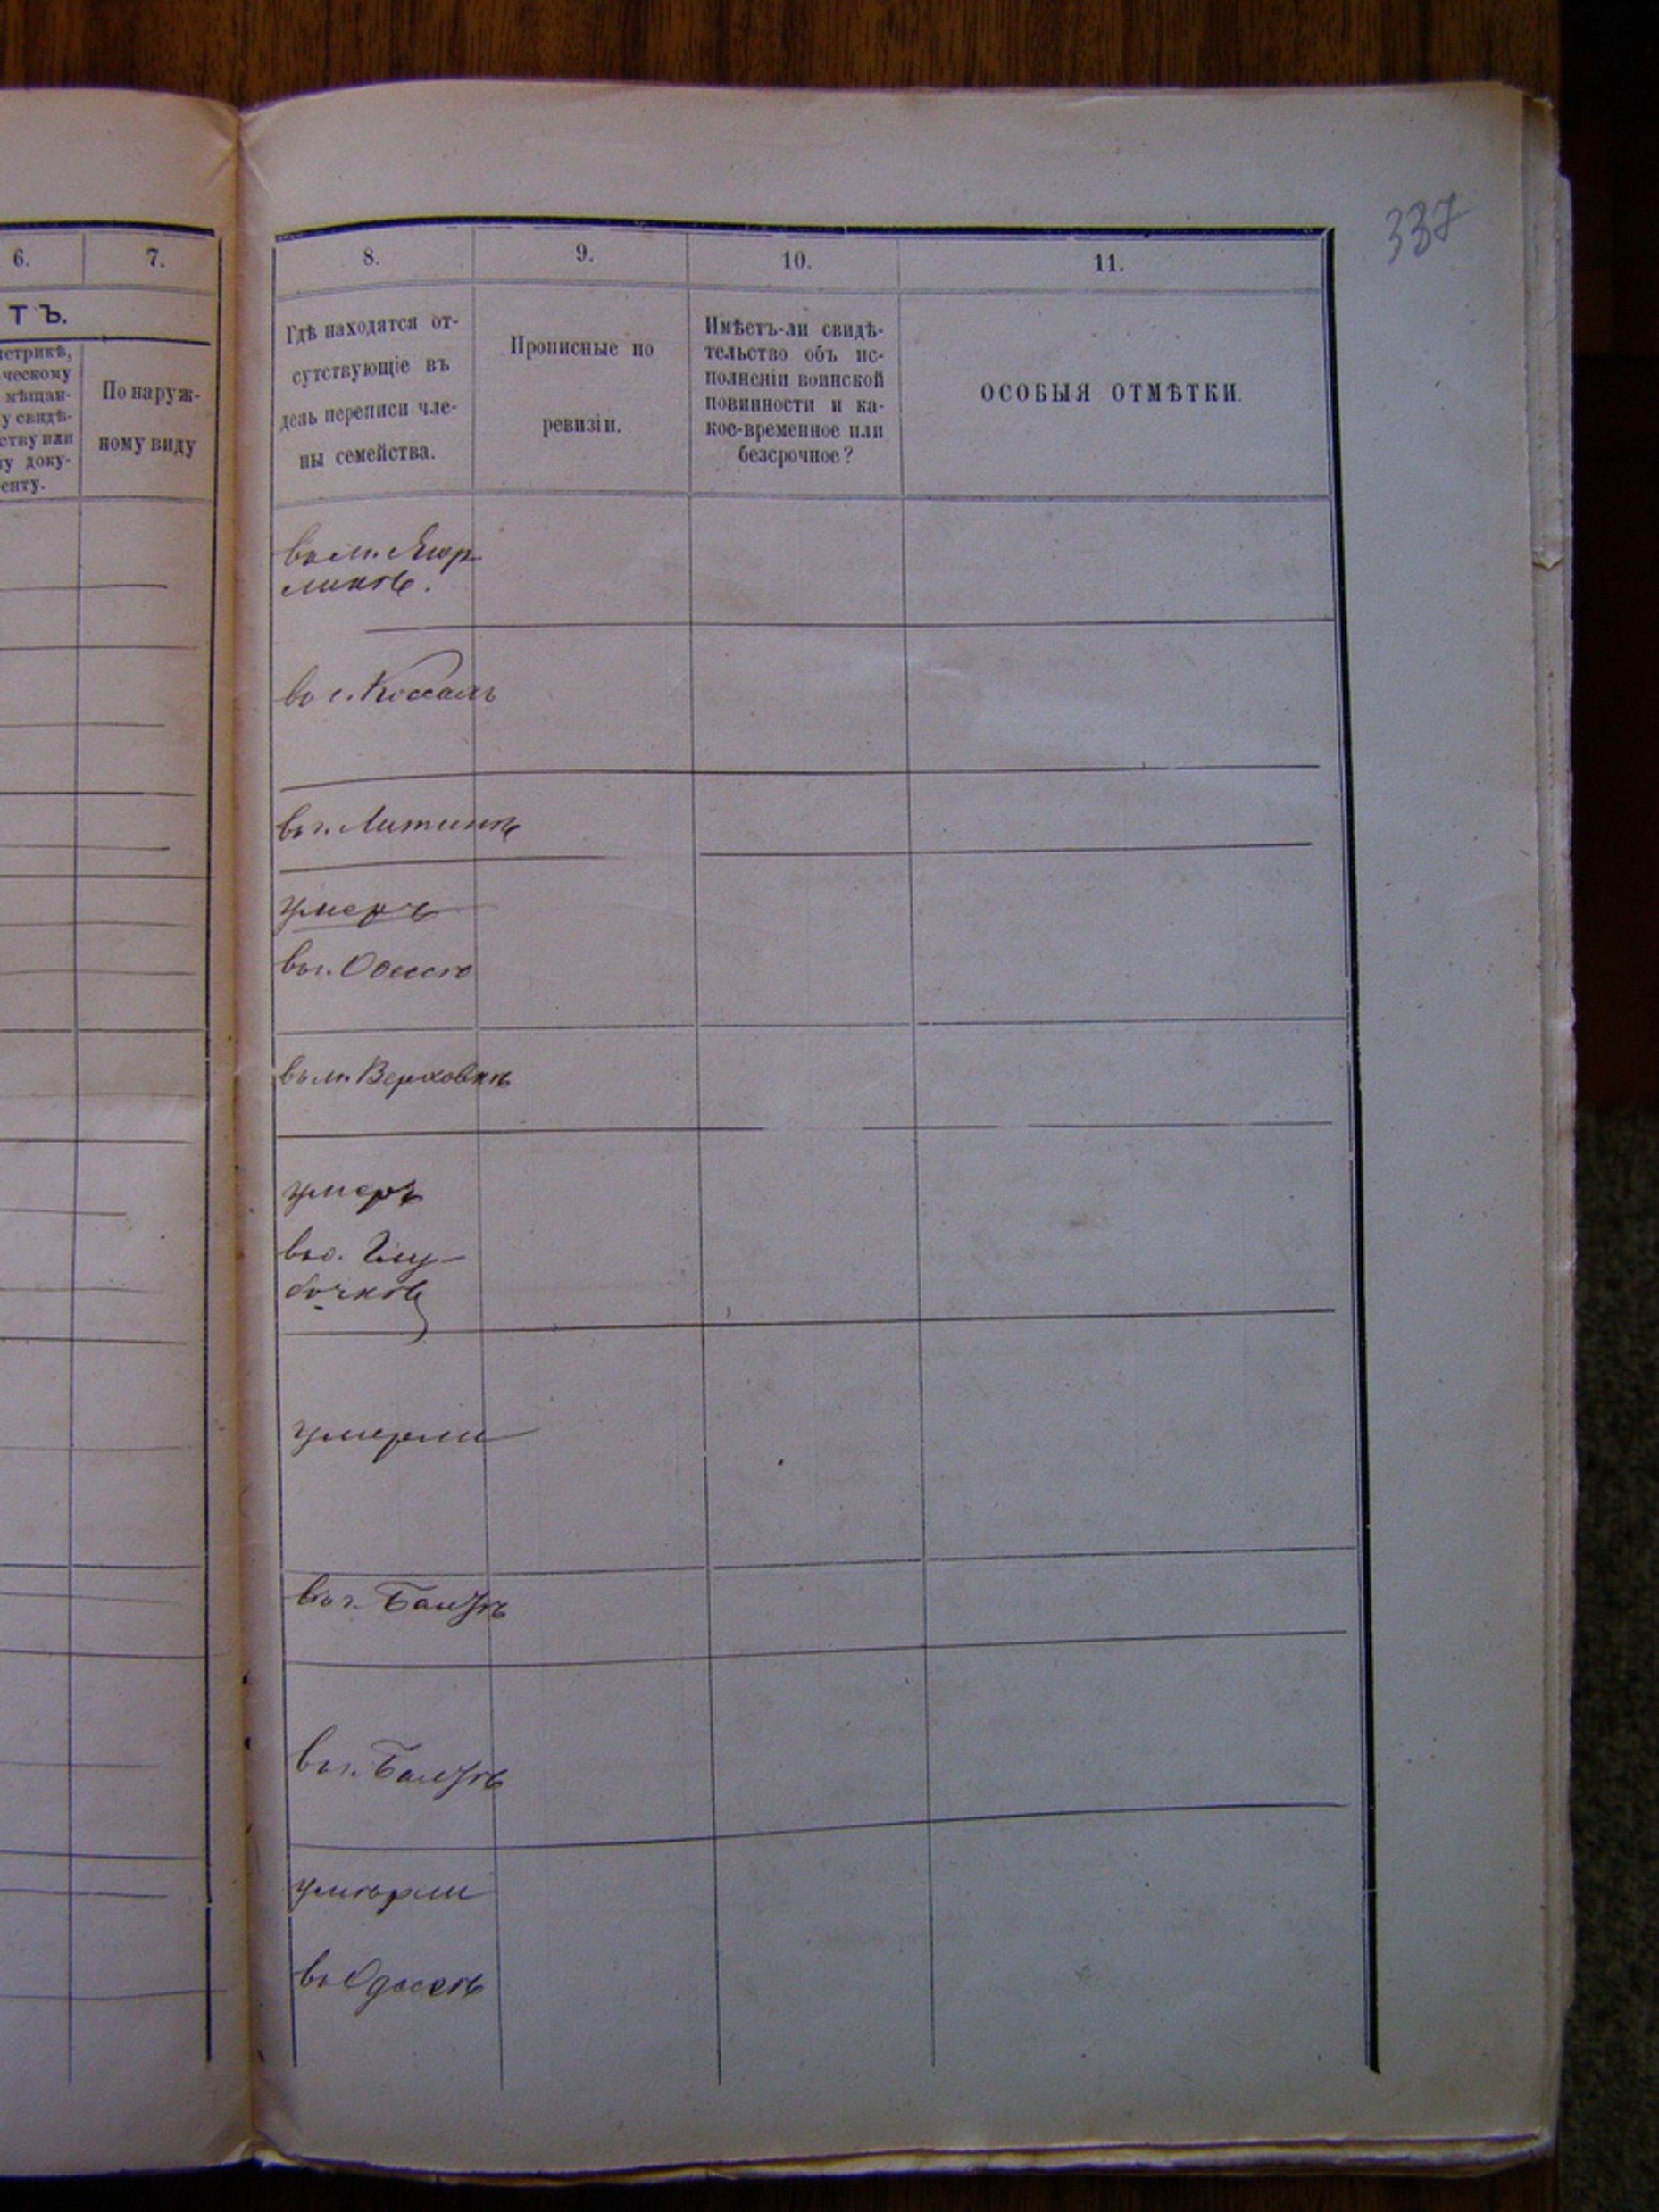 337
6.
7.
8.
9.
10.
11.
ТЪ.
метрикѣ,
ческому
мѣщан-
у свидѣ-
ству или
му доку-
енту.
По наруж-
ному виду
Гдѣ находятся от-
сутствующіе въ
день переписи чле-
ны семейства.
Прописные по
ревизіи.
Имѣетъ-ли свидѣ-
тельство объ ис-
полненіи воинской
повинности и ка-
кое-временное или
безсрочное?
ОСОБЫЯ ОТМѢТКИ.
въ м. Ягор-
лыкѣ.
въ с.
въ г. Литинѣ
умеръ
въ г. Одессѣ
въ м. Верховкѣ
умеръ
въ с. Глу-
бочкѣ
умерли
въ г. Балтѣ
въ г. Балтѣ
умерли
въ Одессѣ